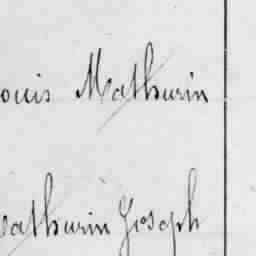 ouis Mathurin
athurin Joseph